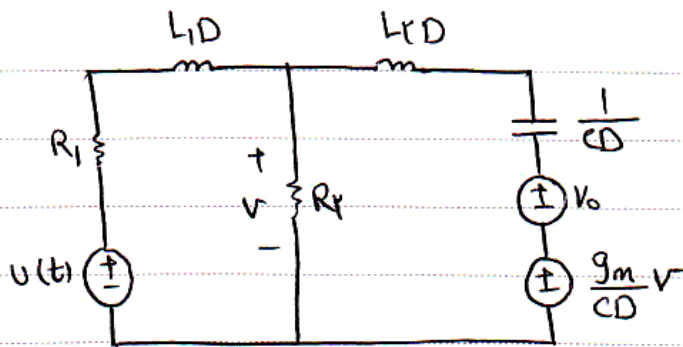 L₁D
L۲D
R₁
+
V
−
R۲
1/CD
V₀
U(t)
gₘ/CD V